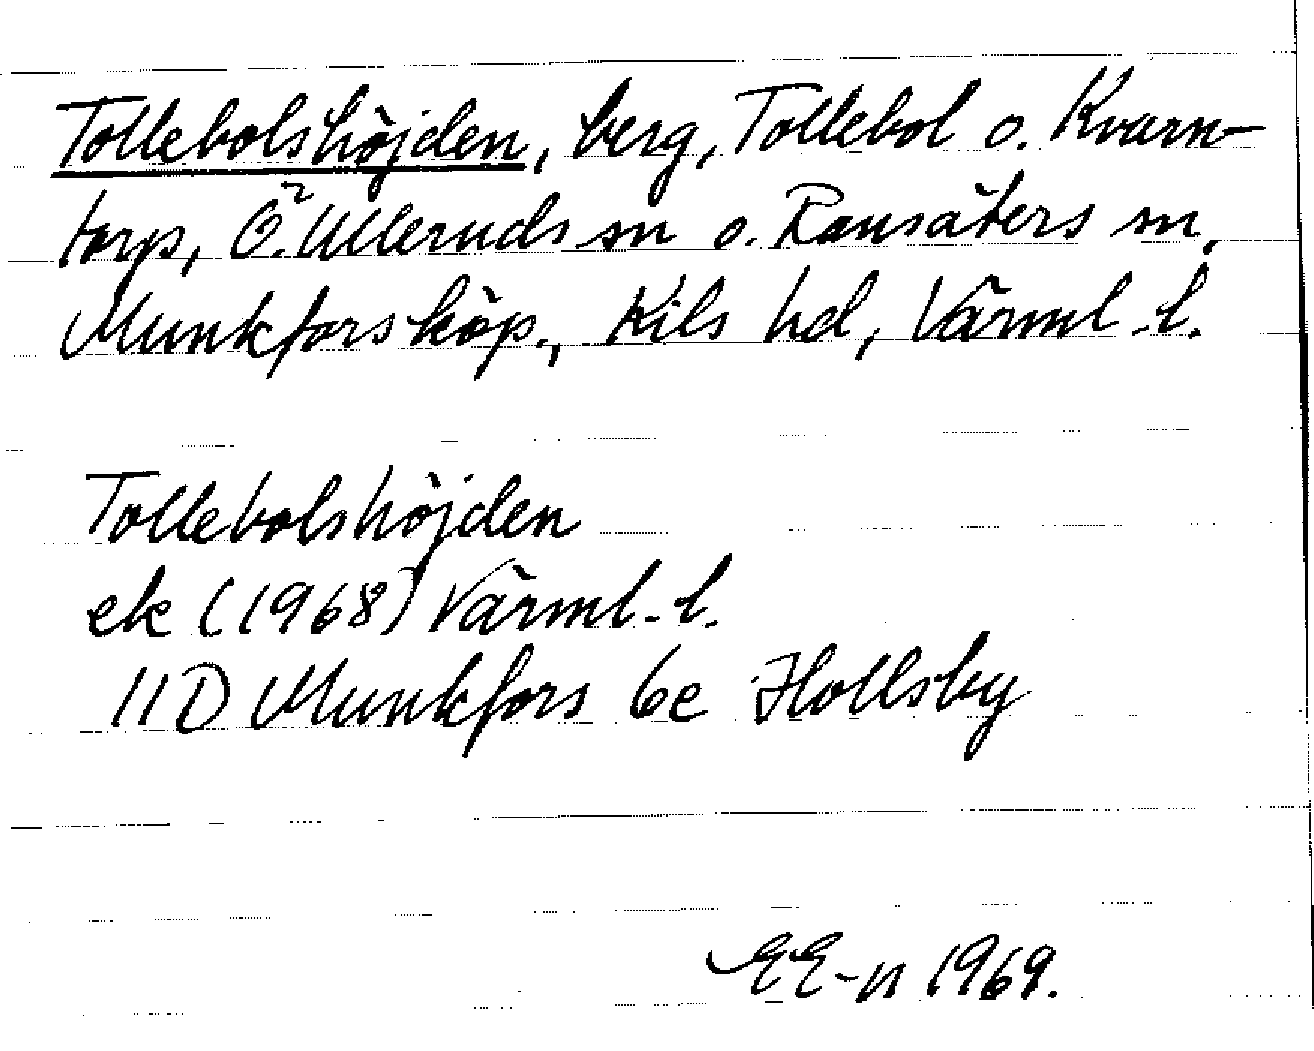 Tollebolshöjden, berg, Tollebol o. Kvarn-
torp, Ö. Ulleruds sn o. Ransäters sn,
Munkfors köp., Kils hd, Värml. l.
Tollebolshöjden
ek (1968) Värml. l.
11D Munkfors 6e Hollsby
EE-n 1969.